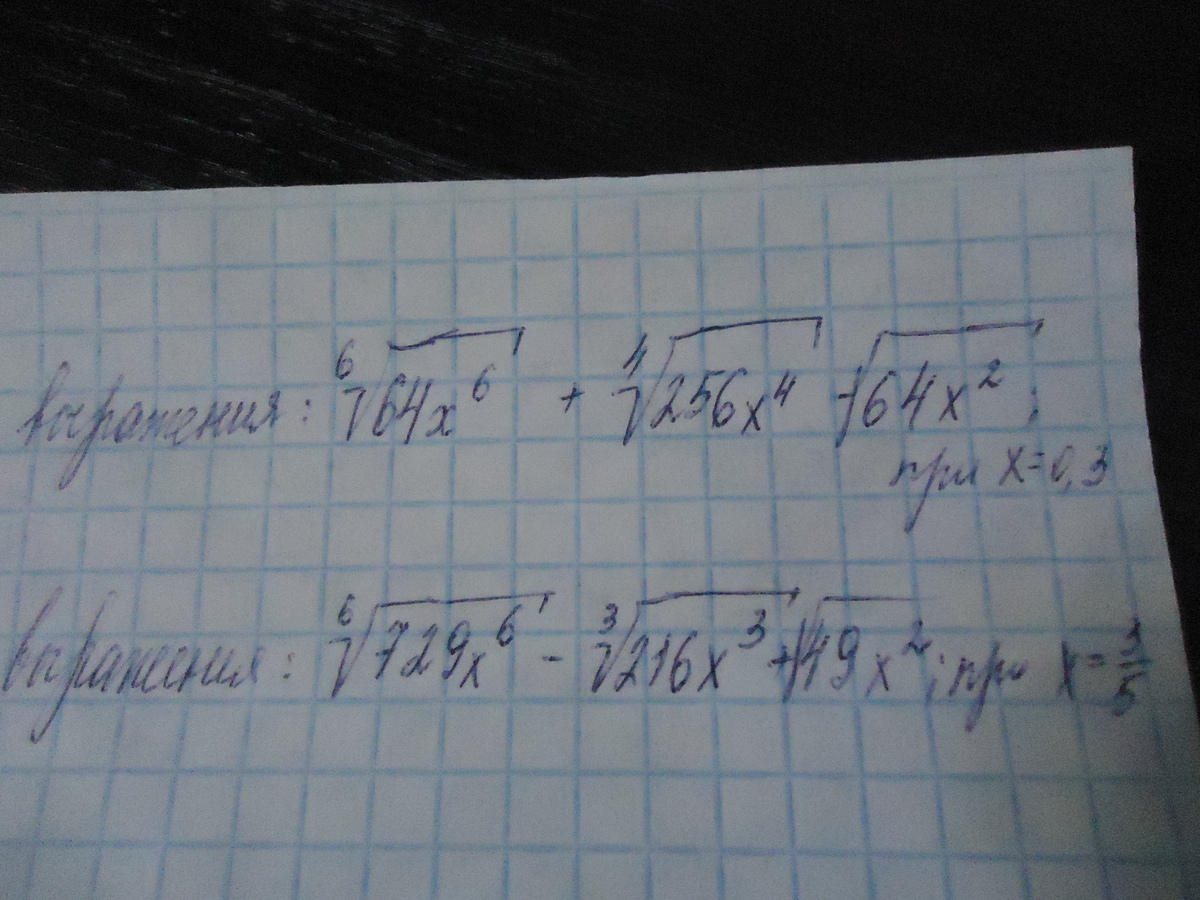 выражения: ⁶√64x⁶ + ⁴√256x⁴ - √64x² ;
при x=0,3
выражения: ⁶√729x⁶ - ³√216x³ + √49x² ; при x = 3/5